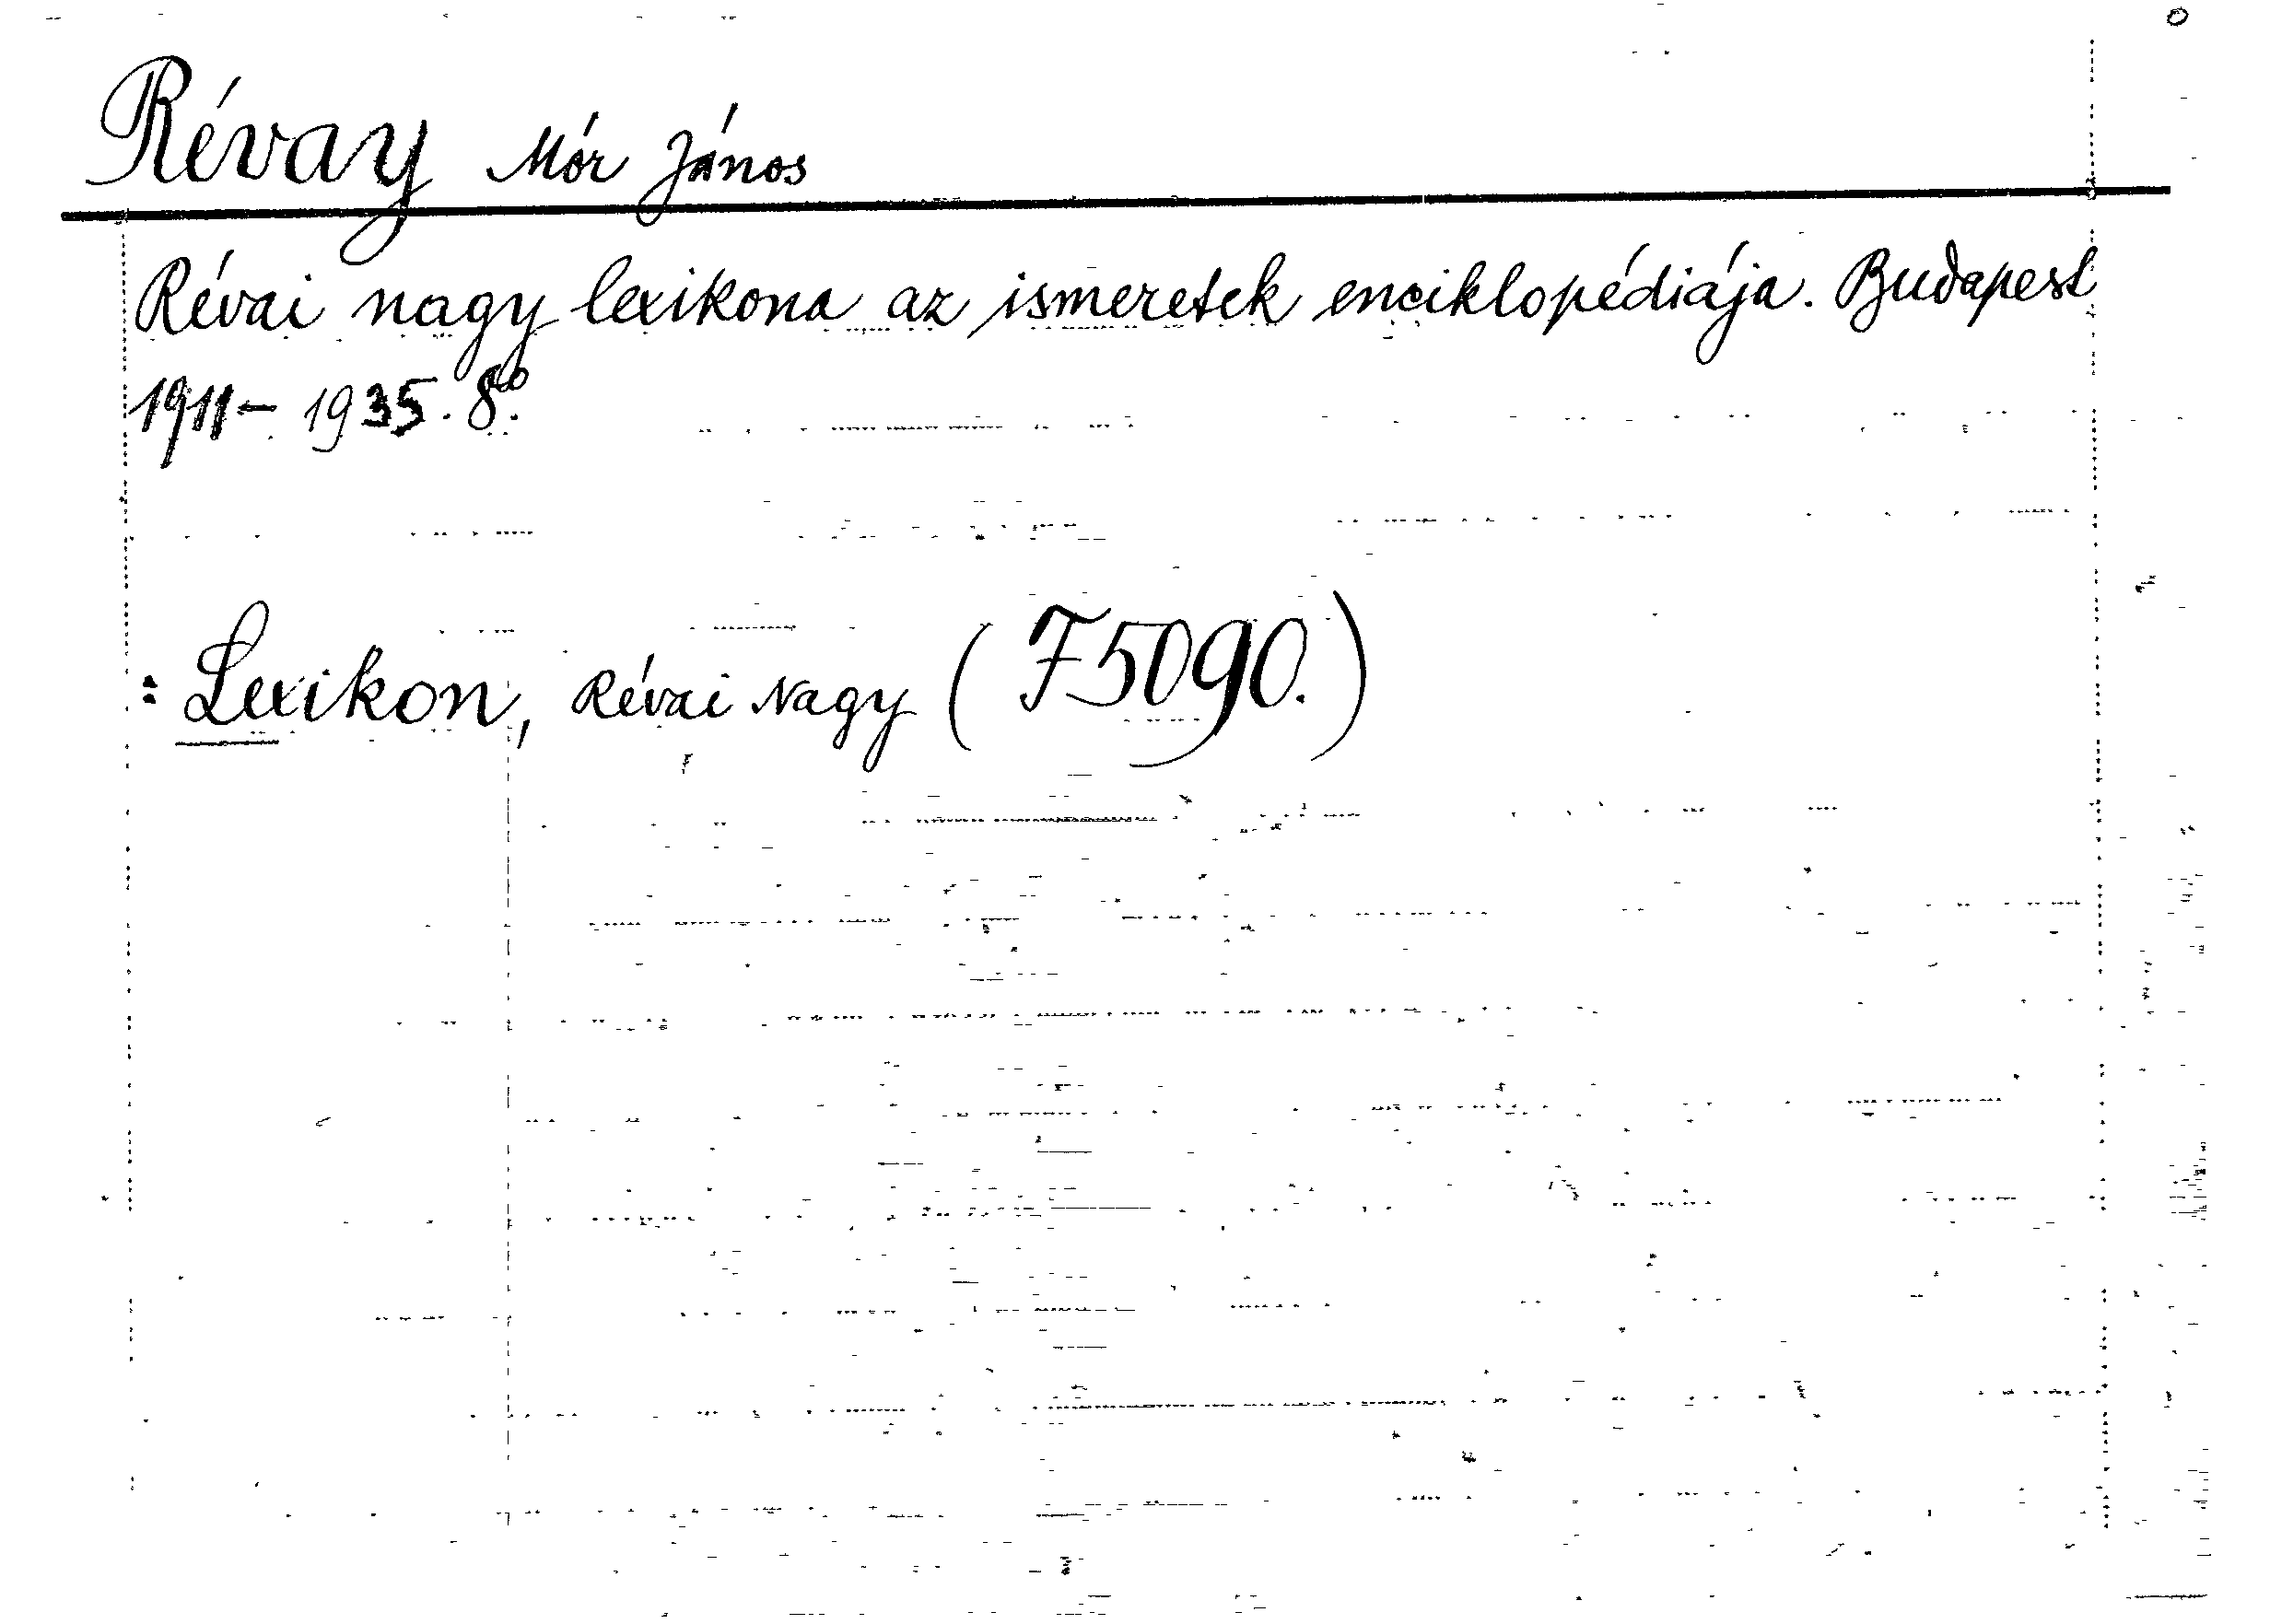 Révay Mór János
Révai nagy lexikona az ismeretek enciklopédiája. Budapest
1911–1935. 8°.
: Lexikon, Révai Nagy (F5090.)